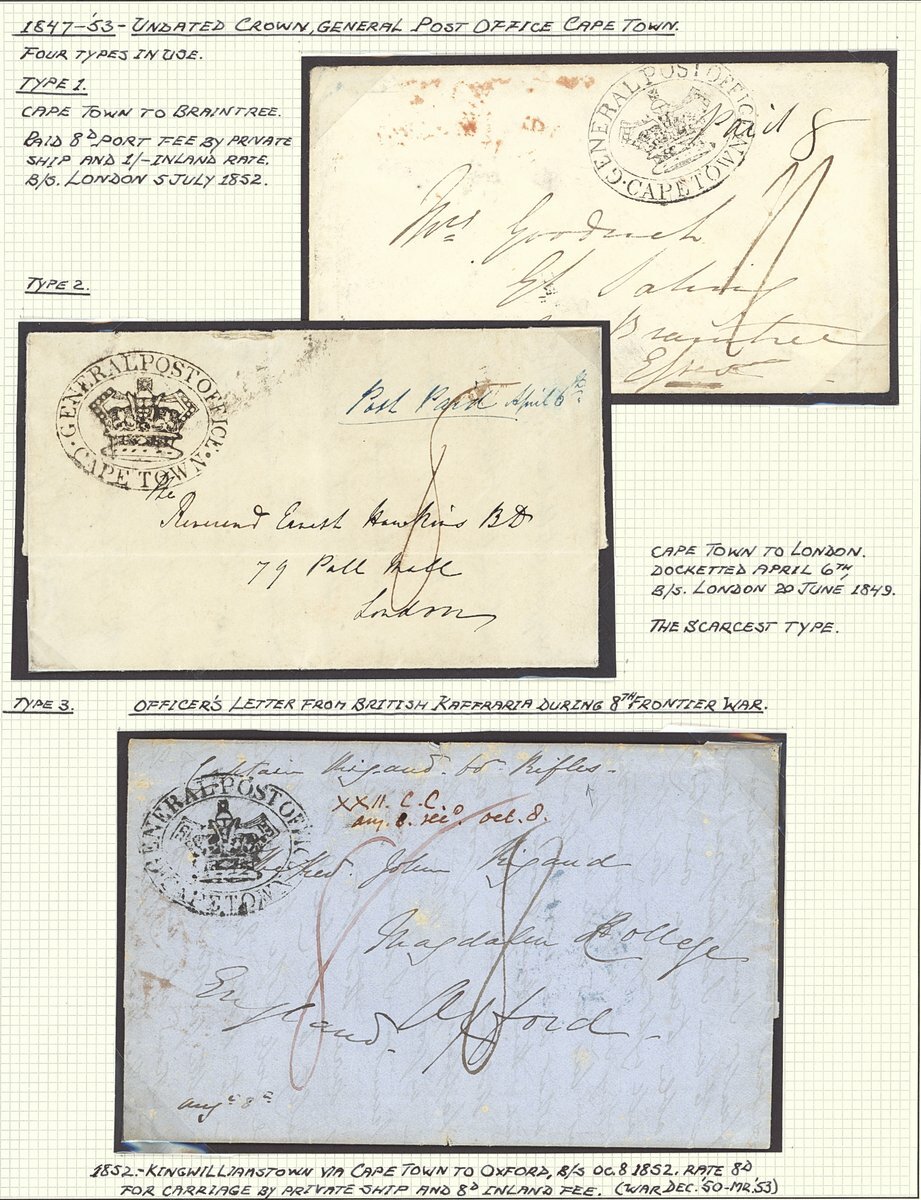 1847-'53- UNDATED CROWN, GENERAL POST OFFICE CAPE TOWN.
FOUR TYPES IN USE.
TYPE 1.
CAPE TOWN TO BRAINTREE.
PAID 8D PORT FEE BY PRIVATE
SHIP AND 1/- INLAND RATE.
B/S. LONDON 5 JULY 1852.
GENERAL POST OFFICE
CAPE TOWN
Paid 8
Mrs Goodrich
Gt Saling
Braintree
Essex
TYPE 2.
GENERAL POST OFFICE
CAPE TOWN
Post Paid April 6th
The
Reverend Ernest Hawkins BD
79 Pall Mall
London
CAPE TOWN TO LONDON.
DOCKETTED APRIL 6TH,
B/S. LONDON 20 JUNE 1849.
THE SCARCEST TYPE.
TYPE 3.
OFFICER'S LETTER FROM BRITISH KAFFRARIA DURING 8TH FRONTIER WAR.
Captain Rigaud. 60 Rifles.
XXII. C.C.
aug. 8. recd. oct. 8.
GENERAL POST OFFI
CAPE TOWN
The Revd. John Rigaud
Magdalen College
Oxford
England.
augt 8th
1852.-KINGWILLIAMSTOWN VIA CAPE TOWN TO OXFORD, B/S OC.8 1852. RATE 8D
FOR CARRIAGE BY PRIVATE SHIP AND 8D INLAND FEE. (WAR DEC.'50-MR.'53)